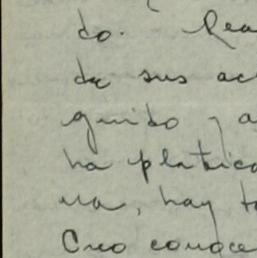 do. Rea
de sus ac
guido y a
ha platica
va, hay t
Creo conoce